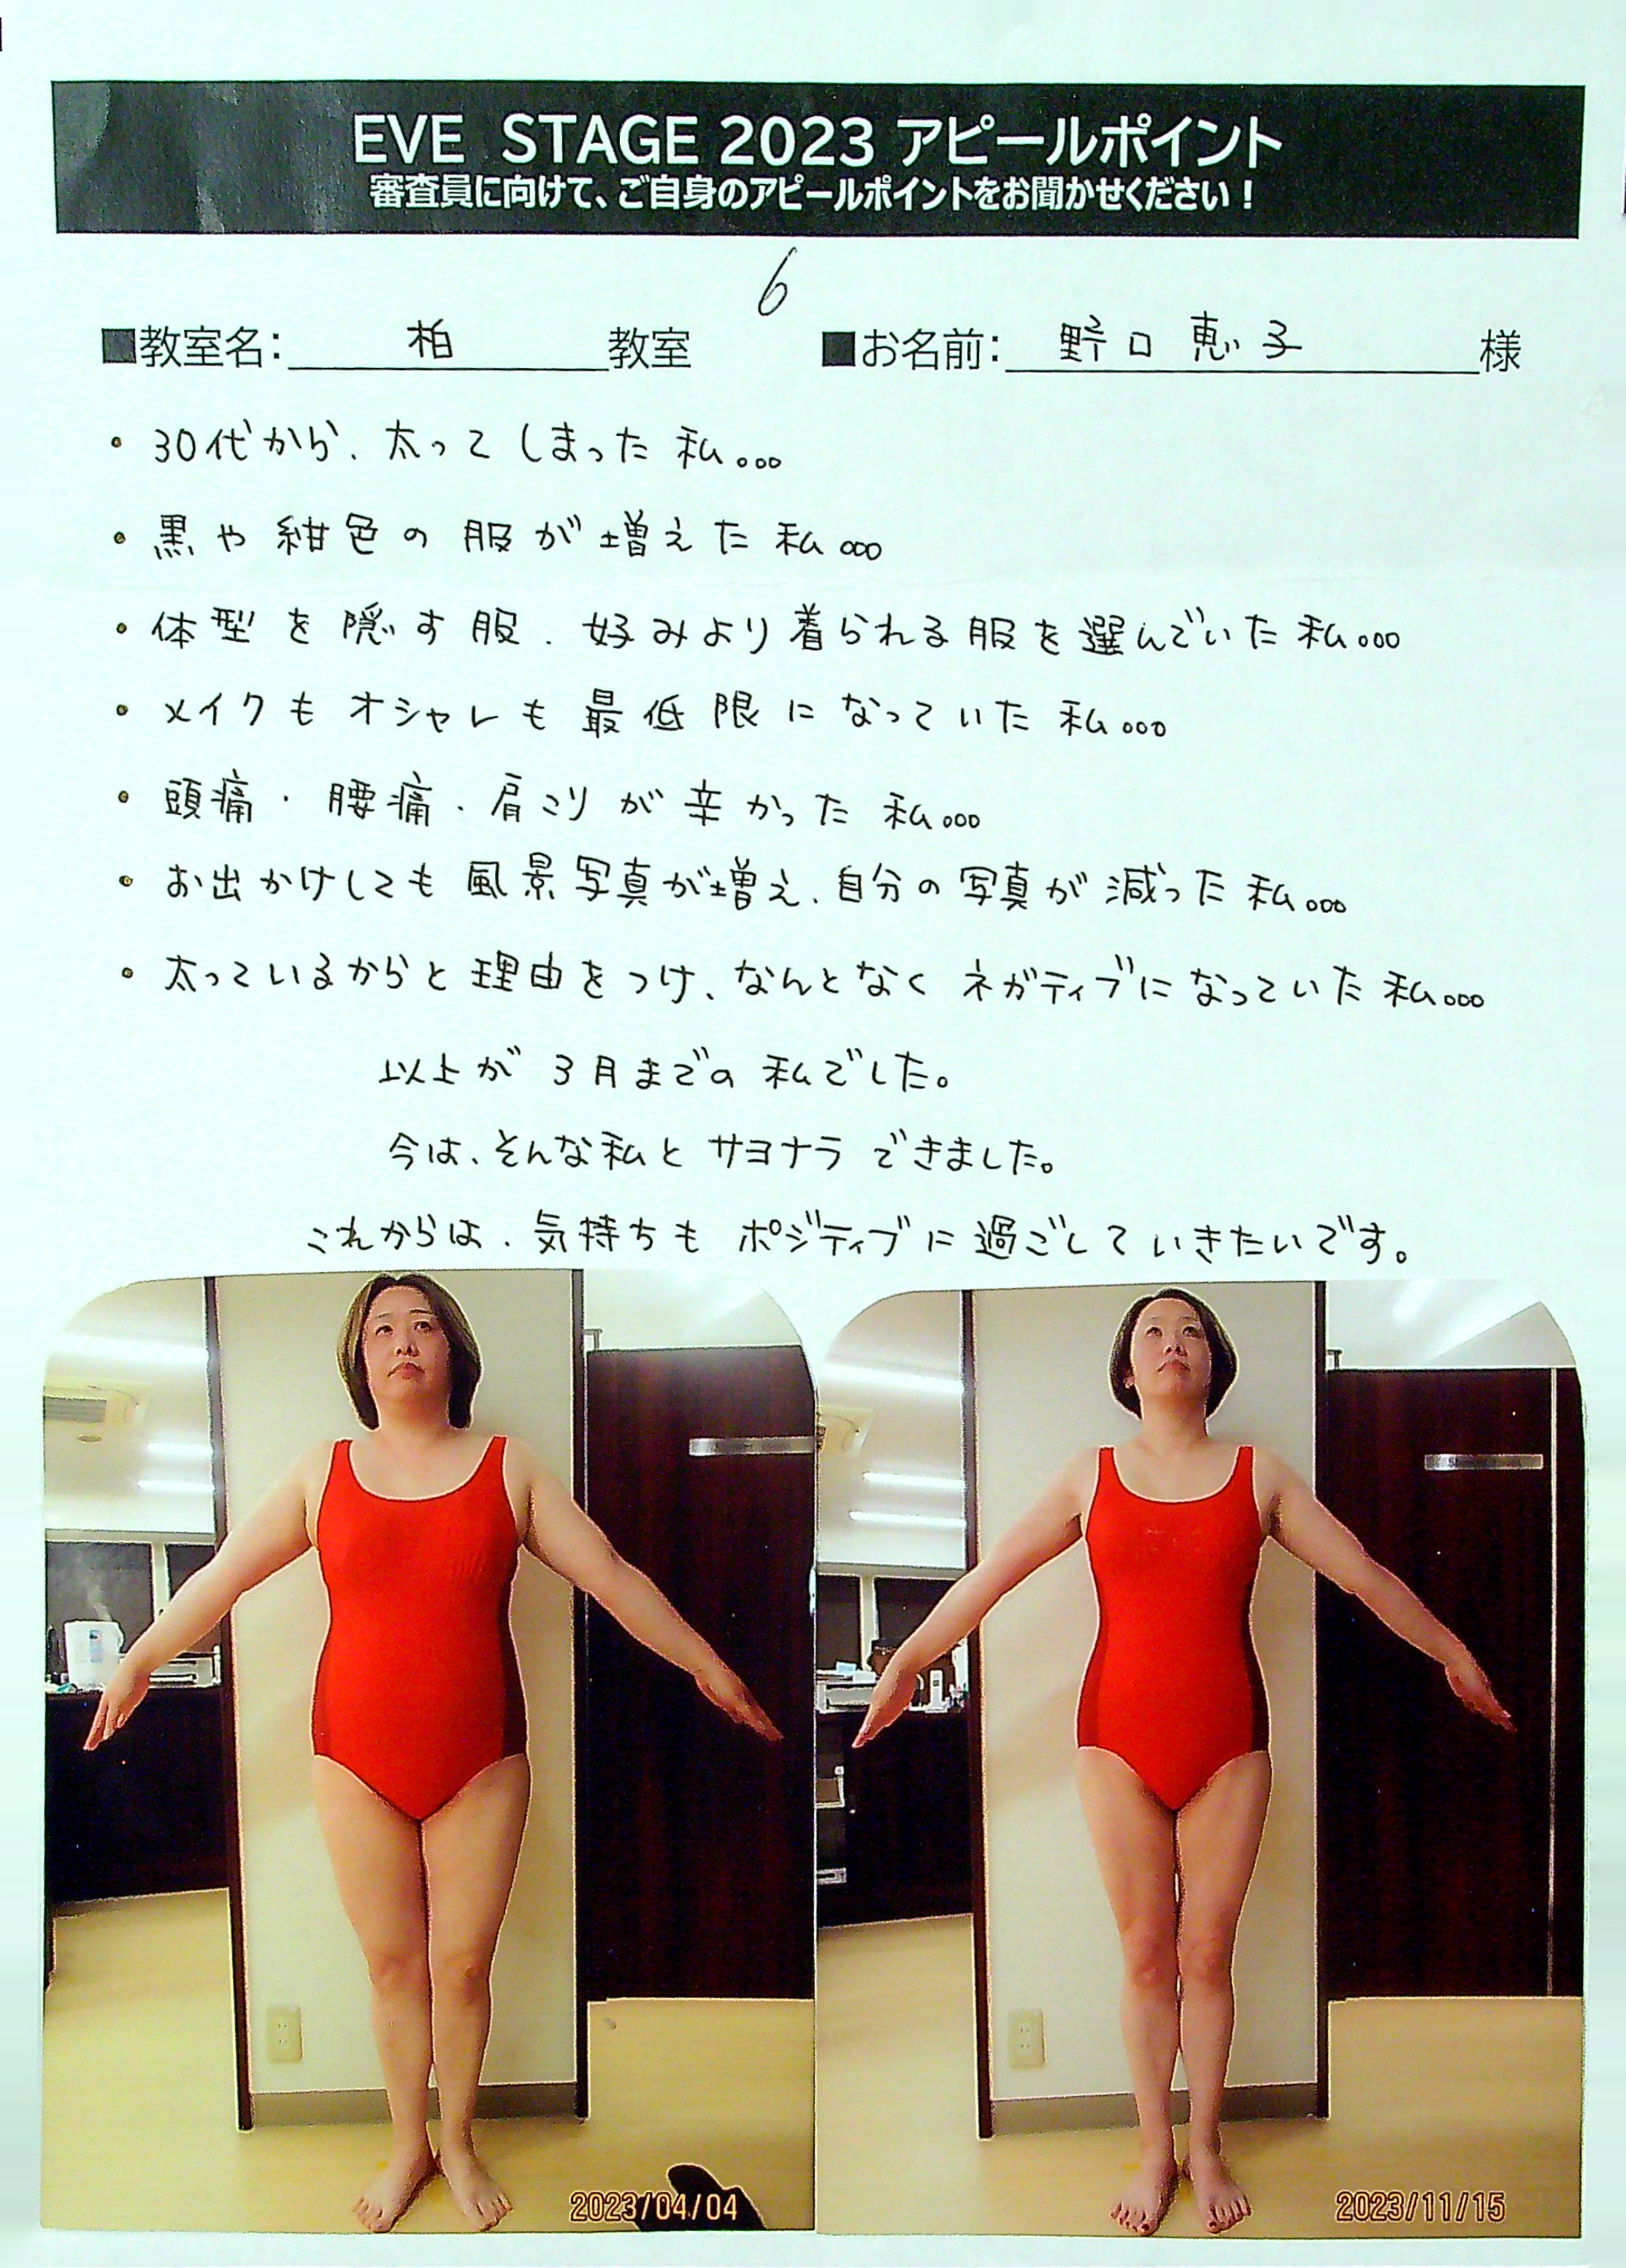 EVE STAGE 2023 アピールポイント
審査員に向けて、ご自身のアピールポイントをお聞かせください！
6
■教室名: 柏 教室 ■お名前: 野口恵子 様
・30代から、太ってしまった私。。。
・黒や紺色の服が増えた私。。。
・体型を隠す服、好みより着られる服を選んでいた私。。。
・メイクもオシャレも最低限になっていた私。。。
・頭痛・腰痛・肩こりが辛かった私。。。
・お出かけしても風景写真が増え、自分の写真が減った私。。。
・太っているからと理由をつけ、なんとなくネガティブになっていた私。。。
以上が3月までの私でした。
今は、そんな私とサヨナラできました。
これからは、気持ちもポジティブに過ごしていきたいです。
2023/04/04
2023/11/15